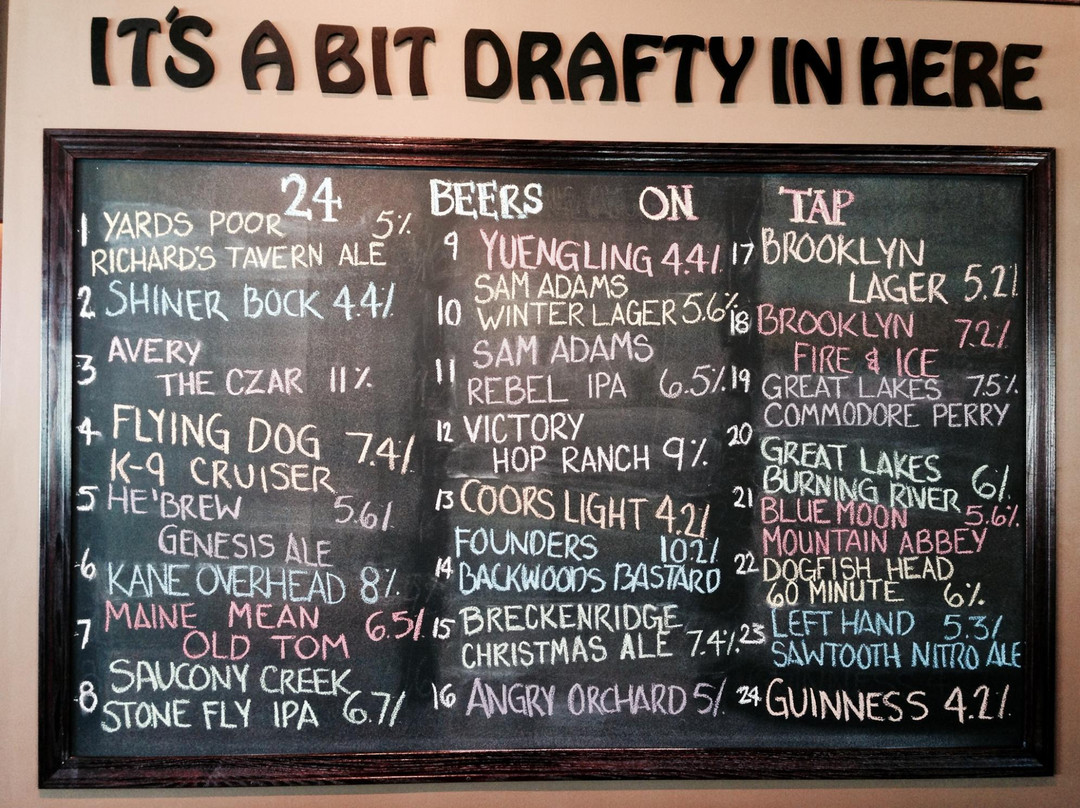 IT'S A BIT DRAFTY IN HERE
24 BEERS ON TAP
1 YARDS POOR 5%
RICHARD'S TAVERN ALE
2 SHINER BOCK 4.4%
3 AVERY
THE CZAR 11%
4 FLYING DOG 7.4%
K-9 CRUISER
5 HE'BREW 5.6%
GENESIS ALE
6 KANE OVERHEAD 8%
7 MAINE MEAN 6.5%
OLD TOM
8 SAUCONY CREEK
STONE FLY IPA 6.7%
9 YUENGLING 4.4%
10 SAM ADAMS
WINTER LAGER 5.6%
11 SAM ADAMS
REBEL IPA 6.5%
12 VICTORY
HOP RANCH 9%
13 COORS LIGHT 4.2%
14 FOUNDERS 10.2%
BACKWOODS BASTARD
15 BRECKENRIDGE
CHRISTMAS ALE 7.4%
16 ANGRY ORCHARD 5%
17 BROOKLYN
LAGER 5.2%
18 BROOKLYN 7.2%
FIRE & ICE
19 GREAT LAKES 7.5%
COMMODORE PERRY
20 GREAT LAKES
BURNING RIVER 6%
21 BLUE MOON 5.6%
MOUNTAIN ABBEY
22 DOGFISH HEAD
60 MINUTE 6%
23 LEFT HAND 5.3%
SAWTOOTH NITRO ALE
24 GUINNESS 4.2%